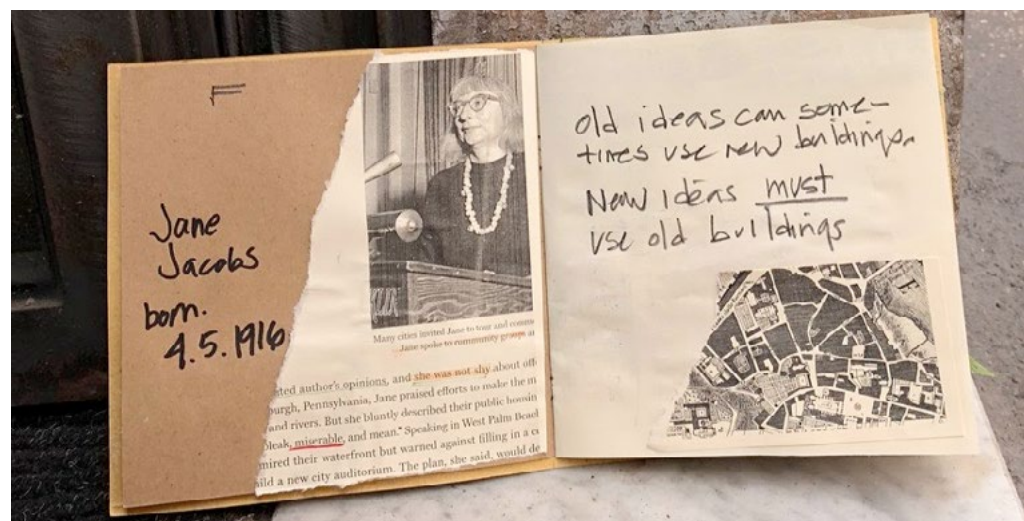 Jane
Jacobs
born.
4.5.1916
Many cities invited Jane to tour and comme
Jane spoke to community groups a
ted author's opinions, and she was not shy about off
burgh, Pennsylvania, Jane praised efforts to make the m
and rivers. But she bluntly described their public housin
bleak, miserable, and mean." Speaking in West Palm Beach
mired their waterfront but warned against filling in a
uild a new city auditorium. The plan, she said, would de
old ideas can some-
times use new buildings.
New ideas must
use old buildings